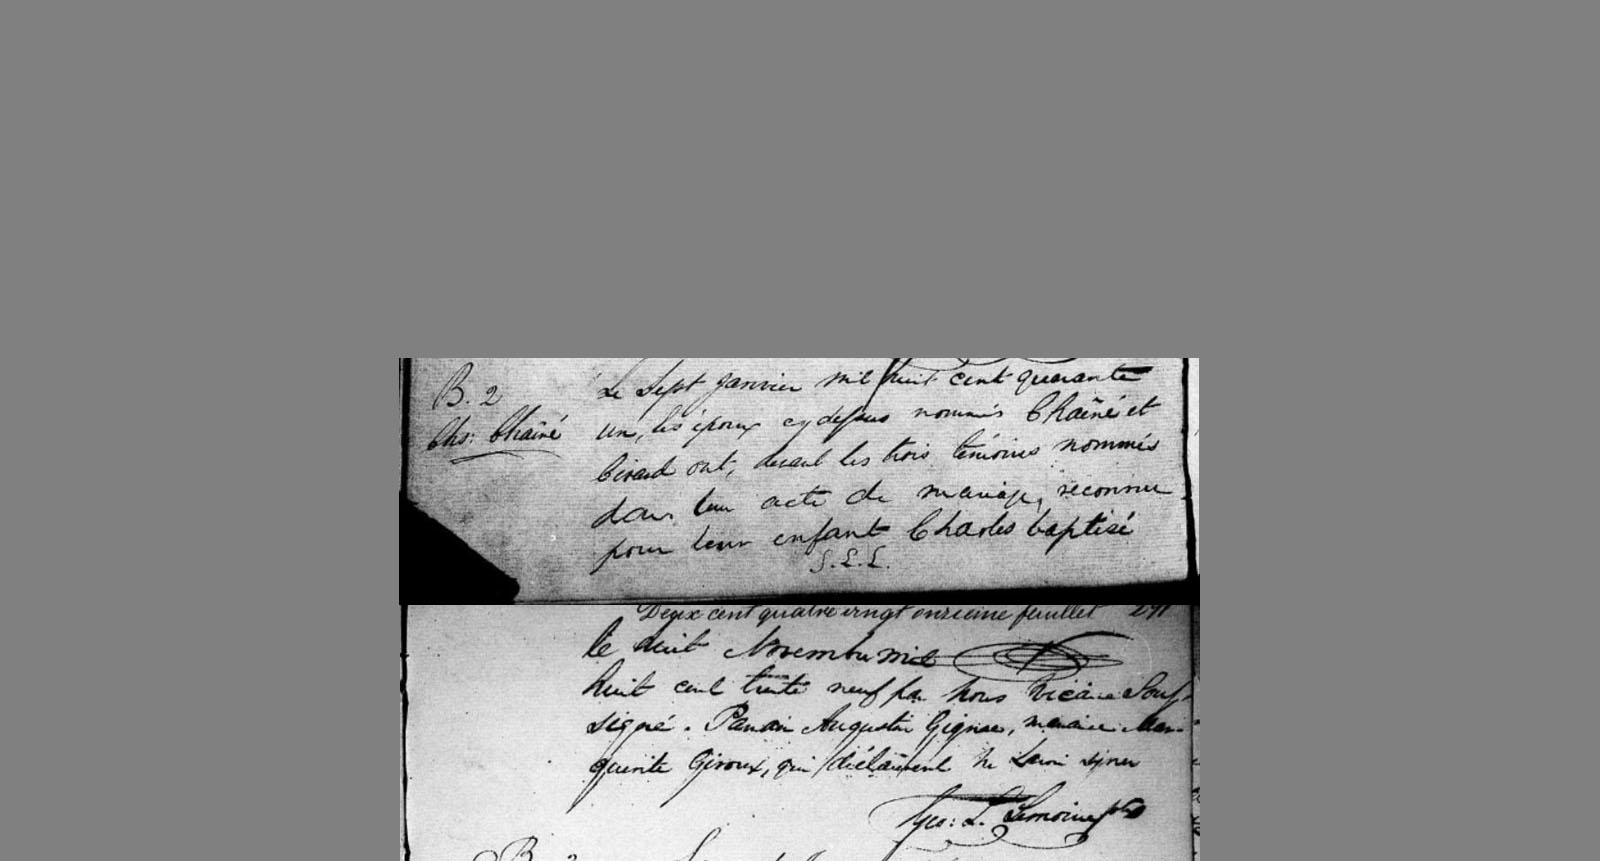 B. 2
Chs: Chaîné
Le Sept Janvier mil huit cent quarante
un, les époux cy dessus nommés Chaîné et
Girard ont, devant les trois témoins nommés
dans leur acte de mariage, reconnu
pour leur enfant Charles baptisé
G.L.L.
Deux cent quatre vingt onzieme feuillet 291
le huit Novembre mil
huit cent trente neuf par nous Vicaire Sous
signé. Parrain Augustin Gignac, marraine Mar-
guerite Giroux, qui déclarent ne savoir signer
Geo: L. Lemoine ptre
B. 3